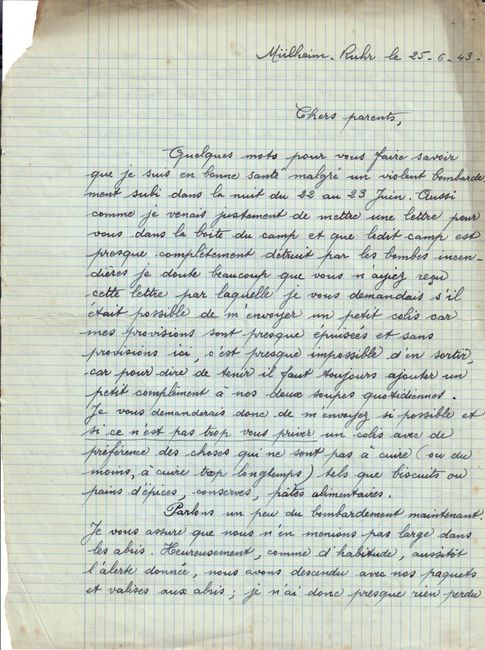 Mülheim-Ruhr le 25-6-43-
Chers parents,
Quelques mots pour vous faire savoir
que je suis en bonne santé malgré un violent bombarde
ment subi dans la nuit du 22 au 23 Juin. Aussi
comme je venais justement de mettre une lettre pour
vous dans la boite du camp et que ledit camp est
presque complètement détruit par les bombes incen-
dières je doute beaucoup que vous n'ayiez reçu
cette lettre par laquelle je vous demandais s'il
était possible de m'envoyer un petit colis car
mes provisions sont presque épuisées et sans
provisions ici, c'est presque impossible d'en sortir,
car pour dire de tenir il faut toujours ajouter un
petit complément à nos deux soupes quotidiennes.
Je vous demanderais donc de m'envoyez si possible et
si ce n'est pas trop vous priver un colis avec de
préférence des choses qui ne sont pas à cuire (ou du
moins, à cuire trop longtemps) tels que biscuits ou
pains d'épices, conserves, pâtes alimentaires.
Parlons un peu du bombardement maintenant.
Je vous assure que nous n'en menions pas large dans
les abris. Heureusement, comme d'habitude, aussitôt
l'alerte donnée, nous avons descendu avec nos paquets
et valises aux abris; je n'ai donc presque rien perdu